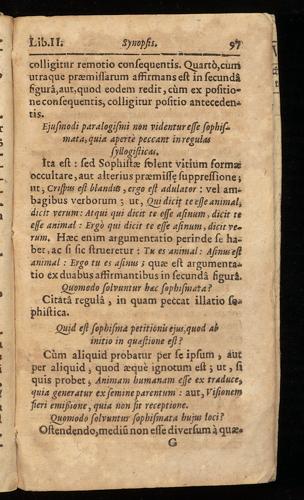 Lib. II. Synopsis. 97
colligitur remotio consequentis. Quartò, cùm
utraque præmissarum affirmans est in secundâ
figurâ, aut, quod eodem redit, cùm ex positio-
ne consequentis, colligitur positio anteceden-
tis.
Ejusmodi paralogismi non videntur esse sophis-
mata, quia apertè peccant in regulas
syllogisticas.
Ita est: sed Sophistæ solent vitium formæ
occultare, aut alterius præmissæ suppressione;
ut, Crispus est blandus, ergo est adulator: vel am-
bagibus verborum; ut, Qui dicit te esse animal,
dicit verum: Atqui qui dicit te esse asinum, dicit te
esse animal: Ergò qui dicit te esse asinum, dicit ve-
rum. Hæc enim argumentatio perinde se ha-
bet, ac si sic strueretur: Tu es animal: Asinus est
animal: Ergo tu es asinus; quæ est argumenta-
tio ex duabus affirmantibus in secundâ figurâ.
Quomodo solvuntur hæc sophismata?
Citatâ regulâ, in quam peccat illatio so-
phistica.
Quid est sophisma petitionis ejus, quod ab
initio in quæstione est?
Cùm aliquid probatur per se ipsum, aut
per aliquid, quod æquè ignotum est; ut, si
quis probet, Animam humanam esse ex traduce,
quia generatur ex semine parentum: aut, Visionem
fieri emissione, quia non fit receptione.
Quomodo solvuntur sophismata hujus loci?
Ostendendo, mediũ non esse diversum à quæ-
G